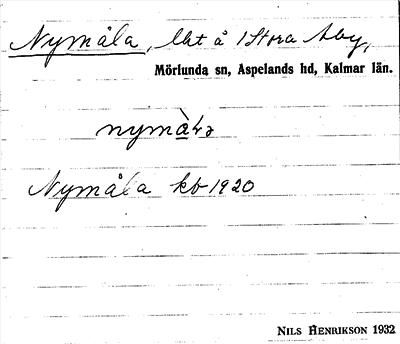 Nymåla, lht å 1 Stora Aby,
Mörlunda sn, Aspelands hd, Kalmar län.
nymàla
Nymåla kb 1920
NILS HENRIKSON 1932